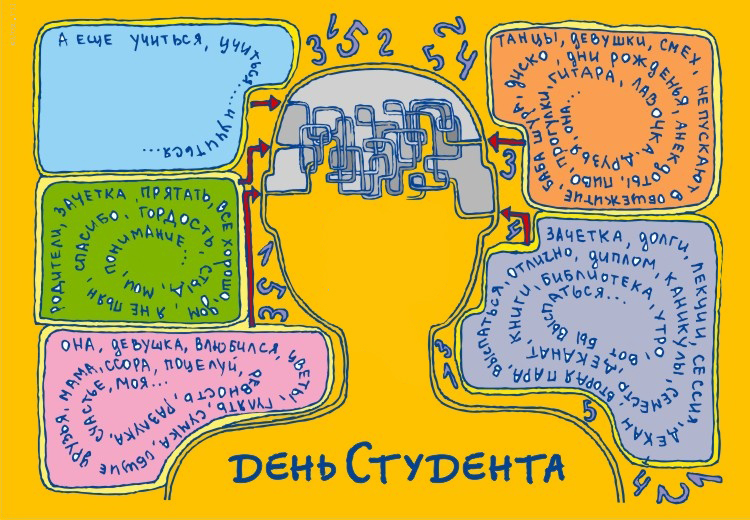 А ЕЩЕ УЧИТЬСЯ, УЧИТЬСЯ... И УЧИТЬСЯ...
3 6 5 2 5 2 4
ТАНЦЫ, ДЕВУШКИ, СМЕХ, НЕ ПУСКАЮТ В ОБЩЕЖИТИЕ, БАБА ШУРА, ДИСКО, ДНИ РОЖДЕНЬЯ, АНЕКДОТЫ, ПИВО, ПРОГУЛКИ, ГИТАРА, ЛАВОЧКА, ДРУЗЬЯ, ОНА...
3
РОДИТЕЛИ, ЗАЧЕТКА, ПРЯТАТЬ, ВСЕ ХОРОШО, ДОМ, Я НЕ ПЬЯН, СПАСИБО, ГОРДОСТЬ, СТЫД, МОИ, ПОНИМАНИЕ...
1 5 3
5
ЗАЧЕТКА, ДОЛГИ, ЛЕКЦИИ, СЕССИЯ, ДЕКАН, ВТОРАЯ ПАРА, ВЫСПАТЬСЯ, ОТЛИЧНО, ДИПЛОМ, КАНИКУЛЫ, СЕМЕСТР, ДЕКАНАТ, КНИГИ, БИБЛИОТЕКА, УТРО, ВОТ БЫ ВЫСПАТЬСЯ...
ОНА, ДЕВУШКА, ВЛЮБИЛСЯ, ЦВЕТЫ, ГУЛЯТЬ, СУМКА, ОБЩИЕ ДРУЗЬЯ, МАМА, ССОРА, ПОЦЕЛУЙ, РЕВНОСТЬ, РАЗЛУКА, СЧАСТЬЕ, МОЯ...
3 1
5
4 2 6
ДЕНЬ СТУДЕНТА